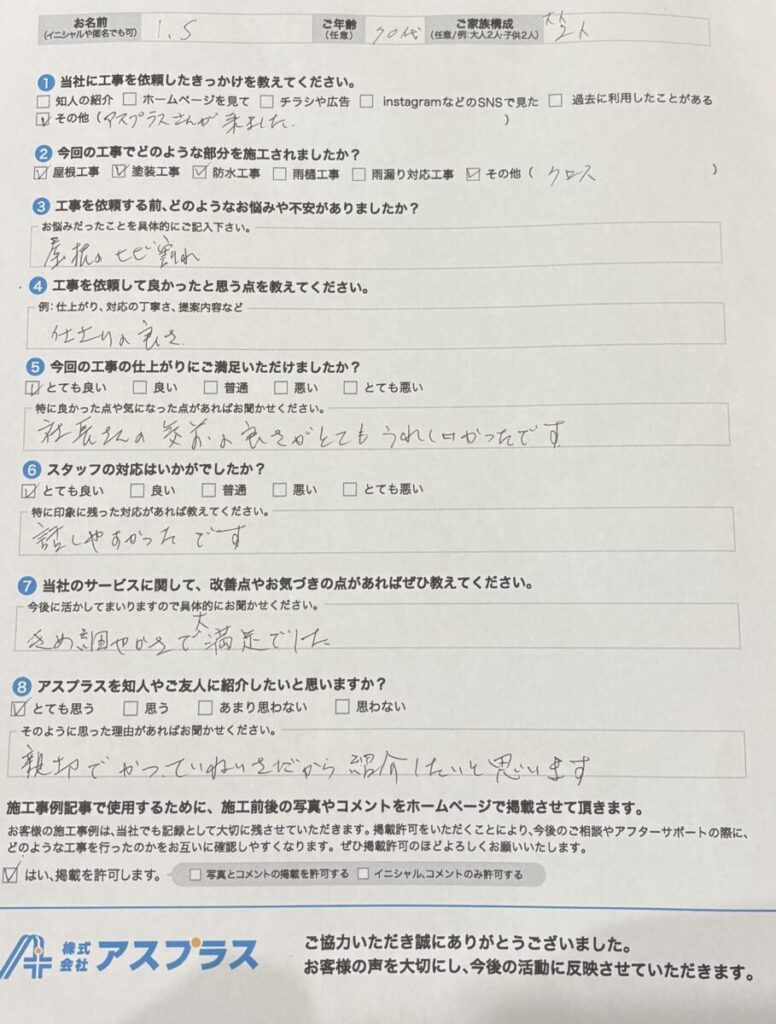 お名前
(イニシャルや匿名でも可)
I.S
ご年齢
(任意)
70代
ご家族構成
(任意/例:大人2人・子供2人)
大人
2人
① 当社に工事を依頼したきっかけを教えてください。
□ 知人の紹介 □ ホームページを見て □ チラシや広告 □ instagramなどのSNSで見た □ 過去に利用したことがある
☑ その他 (アスプラスさんが来ました. )
② 今回の工事でどのような部分を施工されましたか?
☑ 屋根工事 ☑ 塗装工事 ☑ 防水工事 □ 雨樋工事 □ 雨漏り対応工事 ☑ その他 ( クロス )
③ 工事を依頼する前、どのようなお悩みや不安がありましたか?
お悩みだったことを具体的にご記入下さい。
屋根のヒビ割れ
④ 工事を依頼して良かったと思う点を教えてください。
例:仕上がり、対応の丁寧さ、提案内容など
仕上りの良さ
⑤ 今回の工事の仕上がりにご満足いただけましたか?
☑ とても良い □ 良い □ 普通 □ 悪い □ とても悪い
特に良かった点や気になった点があればお聞かせください。
社長さんの の良さがとてもうれしかったです
⑥ スタッフの対応はいかがでしたか?
☑ とても良い □ 良い □ 普通 □ 悪い □ とても悪い
特に印象に残った対応があれば教えてください。
話しやすかったです
⑦ 当社のサービスに関して、改善点やお気づきの点があればぜひ教えてください。
今後に活かしてまいりますので具体的にお聞かせください。
きめ細やかさで大満足でした
⑧ アスプラスを知人やご友人に紹介したいと思いますか?
☑ とても思う □ 思う □ あまり思わない □ 思わない
そのように思った理由があればお聞かせください。
親切でかつ、ていねいさだから紹介したいと思います
施工事例記事で使用するために、施工前後の写真やコメントをホームページで掲載させて頂きます。
お客様の施工事例は、当社でも記録として大切に残させていただきます。掲載許可をいただくことにより、今後のご相談やアフターサポートの際に、
どのような工事を行ったのかをお互いに確認しやすくなります。ぜひ掲載許可のほどよろしくお願いいたします。
☑ はい、掲載を許可します。 □ 写真とコメントの掲載を許可する □ イニシャル、コメントのみ許可する
株式会社 アスプラス
ご協力いただき誠にありがとうございました。
お客様の声を大切にし、今後の活動に反映させていただきます。